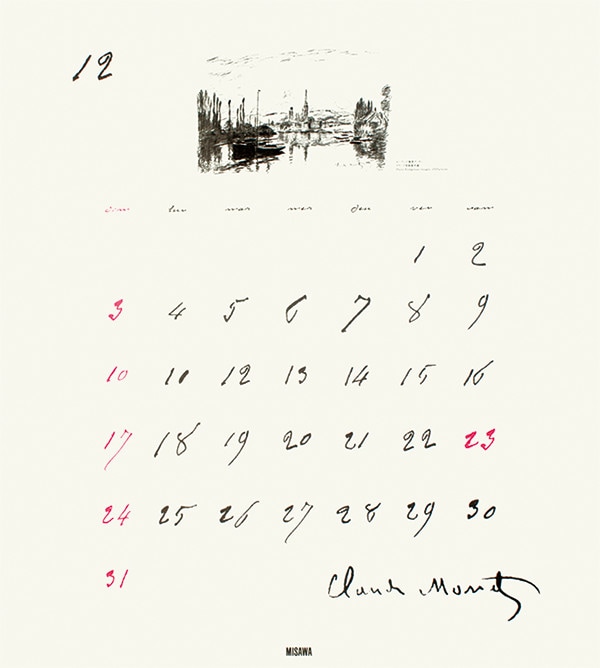 12
dim lun mar mer jeu ven sam
1 2
3 4 5 6 7 8 9
10 11 12 13 14 15 16
17 18 19 20 21 22 23
24 25 26 27 28 29 30
31
Claude Monet
MISAWA